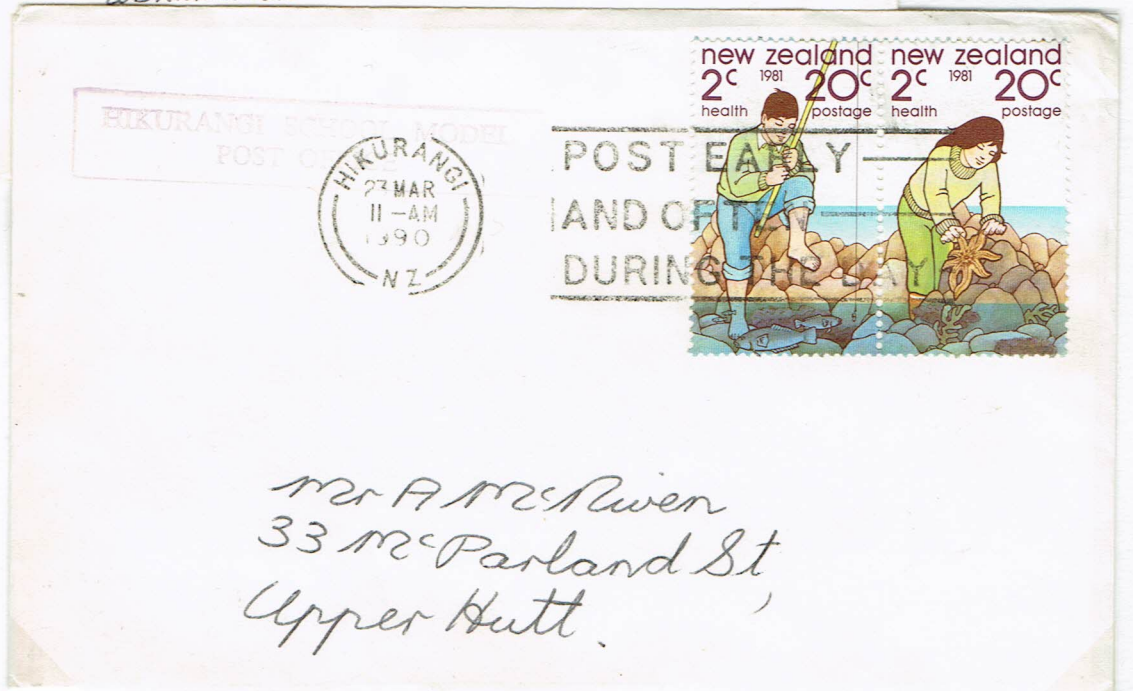 HIKURANGI SCHOOL MODEL
POST OFFICE
HIKURANGI
23 MAR
11-AM
1990
NZ
POST EARLY
AND OFTEN
DURING THE DAY
new zealand
2c 1981 20c
health postage
new zealand
2c 1981 20c
health postage
Mr A McNiven
33 McParland St,
Upper Hutt.